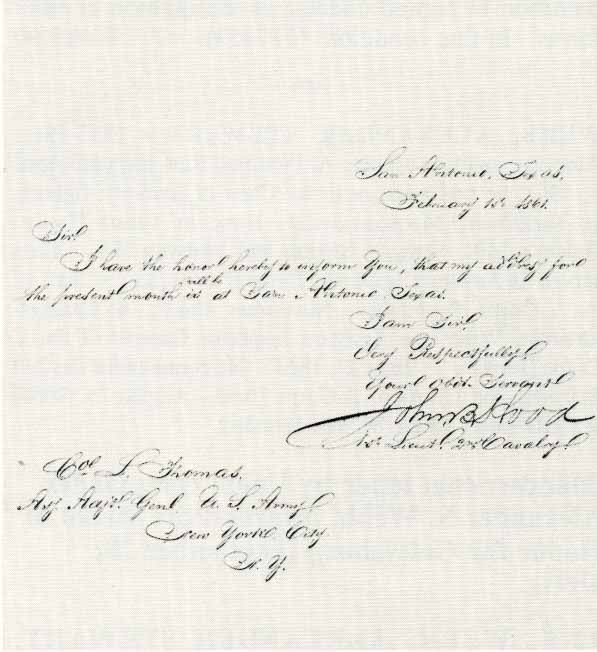 San Antonio, Texas,
February 1st 1861.
Sir
I have the honor hereby to inform You, that my address for
the present month is will be at San Antonio Texas.
I am Sir
Very Respectfully
Your obdt Servant
John B Hood
1st Lieut. 2nd Cavalry
Col L. Thomas.
Adjt Genl U. S. Army
New York City
N. Y.